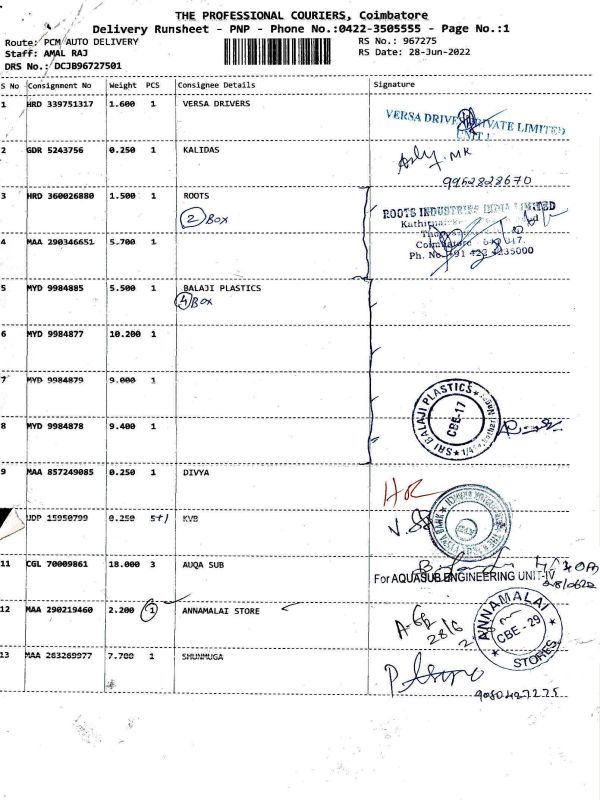 THE PROFESSIONAL COURIERS, Coimbatore
Delivery Runsheet - PNP - Phone No.:0422-3505555 - Page No.:1
Route: PCM AUTO DELIVERY RS No.: 967275
Staff: AMAL RAJ RS Date: 28-Jun-2022
DRS No.: DCJB96727501
S No Consignment No Weight PCS Consignee Details Signature
1 HRD 339751317 1.600 1 VERSA DRIVERS
VERSA DRIVE PRIVATE LIMITED
UNIT 1
2 GDR 5243756 0.250 1 KALIDAS
MR
9962828670
3 HRD 360026880 1.500 1 ROOTS
2 BOX
ROOTS INDUSTRIES INDIA LIMITED
4 MAA 290346651 5.700 1
Coimbatore - 641 047.
Ph. No. +91 422 4235000
5 MYD 9984885 5.500 1 BALAJI PLASTICS
4 BOX
6 MYD 9984877 10.200 1
7 MYD 9984879 9.000 1
8 MYD 9984878 9.400 1
SRI BALAJI PLASTICS
CBE-17
9 MAA 857249085 0.250 1 DIVYA
HR
JDP 15950799 0.250 5+1 KVB
11 CGL 70009861 18.000 3 AUQA SUB
For AQUASUB ENGINEERING UNIT-IV
12 MAA 290219460 2.200 1 ANNAMALAI STORE
28/6
ANNAMALAI
CBE - 29
STORES
13 MAA 263269977 7.700 1 SHUNMUGA
9080427275